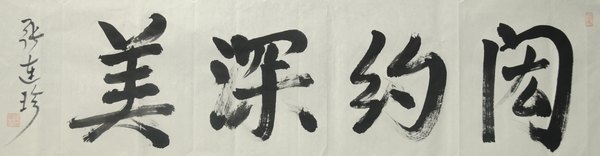 闳约深美
张连珍